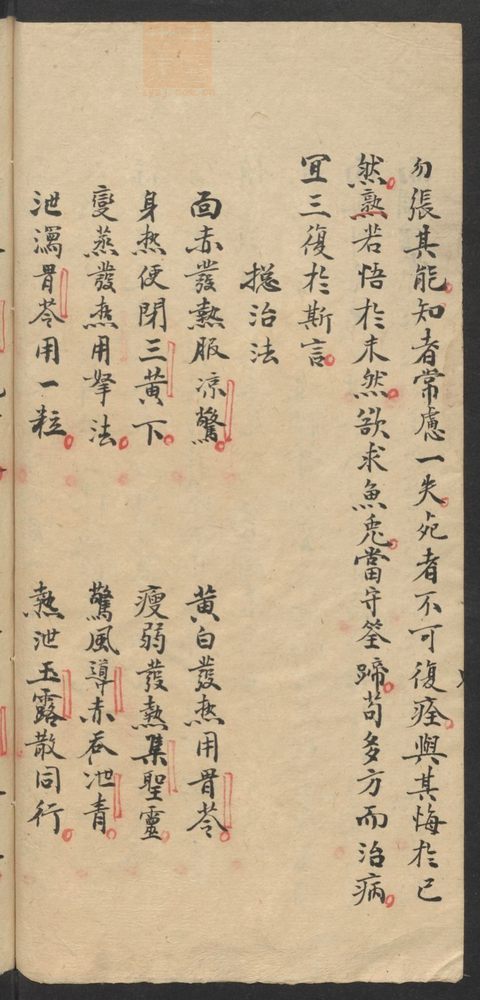 勿張其能知者常慮一失死者不可復痊與其悔於已
然熟若悟於未然欲求魚兎當守筌蹄苟多方而治病
宜三復於斯言
捴治法
面赤發熱服凉驚　黃白發热用胃苓
身热便閉三黃下　瘦弱發熱集聖靈
變蒸發热用拏法　驚風導赤吞泄青
泄瀉胃苓用一粒　熱泄玉露散同行